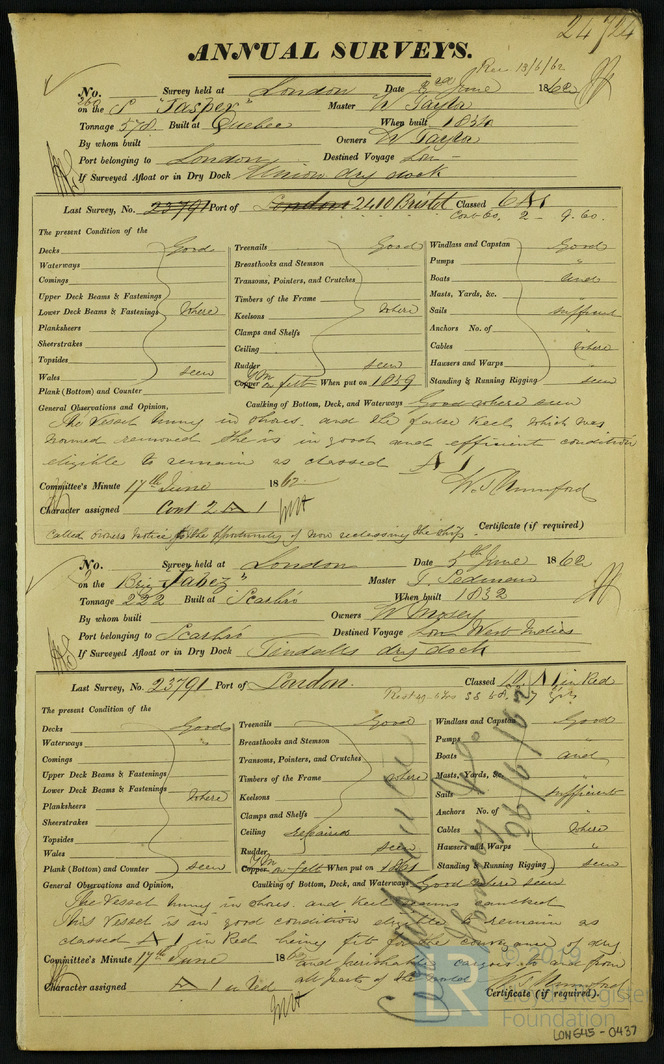 24724
ANNUAL SURVEYS.
Rec 13/6/62
No. 260 Survey held at London Date June 1862
on the S "Jasper" Master W Taylor
Tonnage 578 Built at Quebec When built 1834
By whom built Owners W Taylor
Port belonging to London Destined Voyage Lon-
If Surveyed Afloat or in Dry Dock Union dry dock
Last Survey, No. 23791 Port of London 2410 Bristol Classed 6 A 1
Cont Co. 2
The present Condition of the
Decks Good
Waterways
Comings
Upper Deck Beams & Fastenings
Lower Deck Beams & Fastenings where
Planksheers
Sheerstrakes
Topsides
Wales seen
Plank (Bottom) and Counter
Treenails Good
Breasthooks and Stemson
Transoms, Pointers, and Crutches
Timbers of the Frame
Keelsons where
Clamps and Shelfs
Ceiling
Rudder seen
Copper YM on felt When put on 1859
Windlass and Capstan Good
Pumps "
Boats and
Masts, Yards, &c. "
Sails sufficient
Anchors No. of "
Cables where
Hausers and Warps "
Standing & Running Rigging seen
General Observations and Opinion, Caulking of Bottom, Deck, and Waterways Good where seen
The Vessel hung in shores and the false keel which was
wormed removed She is in good and efficient condition
eligible to remain as classed A 1
Committee's Minute 17th June 1862
Character assigned Cont 2 A 1
Certificate (if required)
Called owners notice to the opportunity of now reclassing the ship.
No. Survey held at London Date 5th June 1862
on the Brig "Jabez" Master T. Pedman
Tonnage 222 Built at Scarbro When built 1832
By whom built Owners W Mosey
Port belonging to Scarbro Destined Voyage Lon West Indies
If Surveyed Afloat or in Dry Dock Tindalls dry dock
Last Survey, No. 23791 Port of London. Classed A 1 in Red
The present Condition of the
Decks Good
Waterways "
Comings
Upper Deck Beams & Fastenings
Lower Deck Beams & Fastenings where
Planksheers
Sheerstrakes
Topsides
Wales
Plank (Bottom) and Counter seen
Treenails Good
Breasthooks and Stemson
Transoms, Pointers, and Crutches
Timbers of the Frame where
Keelsons
Clamps and Shelfs
Ceiling repaired
Rudder seen
Copper YM on felt When put on 1861
Windlass and Capstan Good
Pumps "
Boats and
Masts, Yards, &c. "
Sails sufficient
Anchors No. of
Cables where
Hausers and Warps "
Standing & Running Rigging seen
General Observations and Opinion, Caulking of Bottom, Deck, and Waterways Good where seen
The Vessel hung in shores and keel seams caulked
This Vessel is in good condition eligible to remain as
classed A 1 in Red being fit for the conveyance of dry
and perishable cargoes to and from
all parts of the world
Committee's Minute 17th June 1862
Character assigned A 1 in Red
Certificate (if required).
© 2019
LR
Lloyd's Register
Foundation
LON645-0437